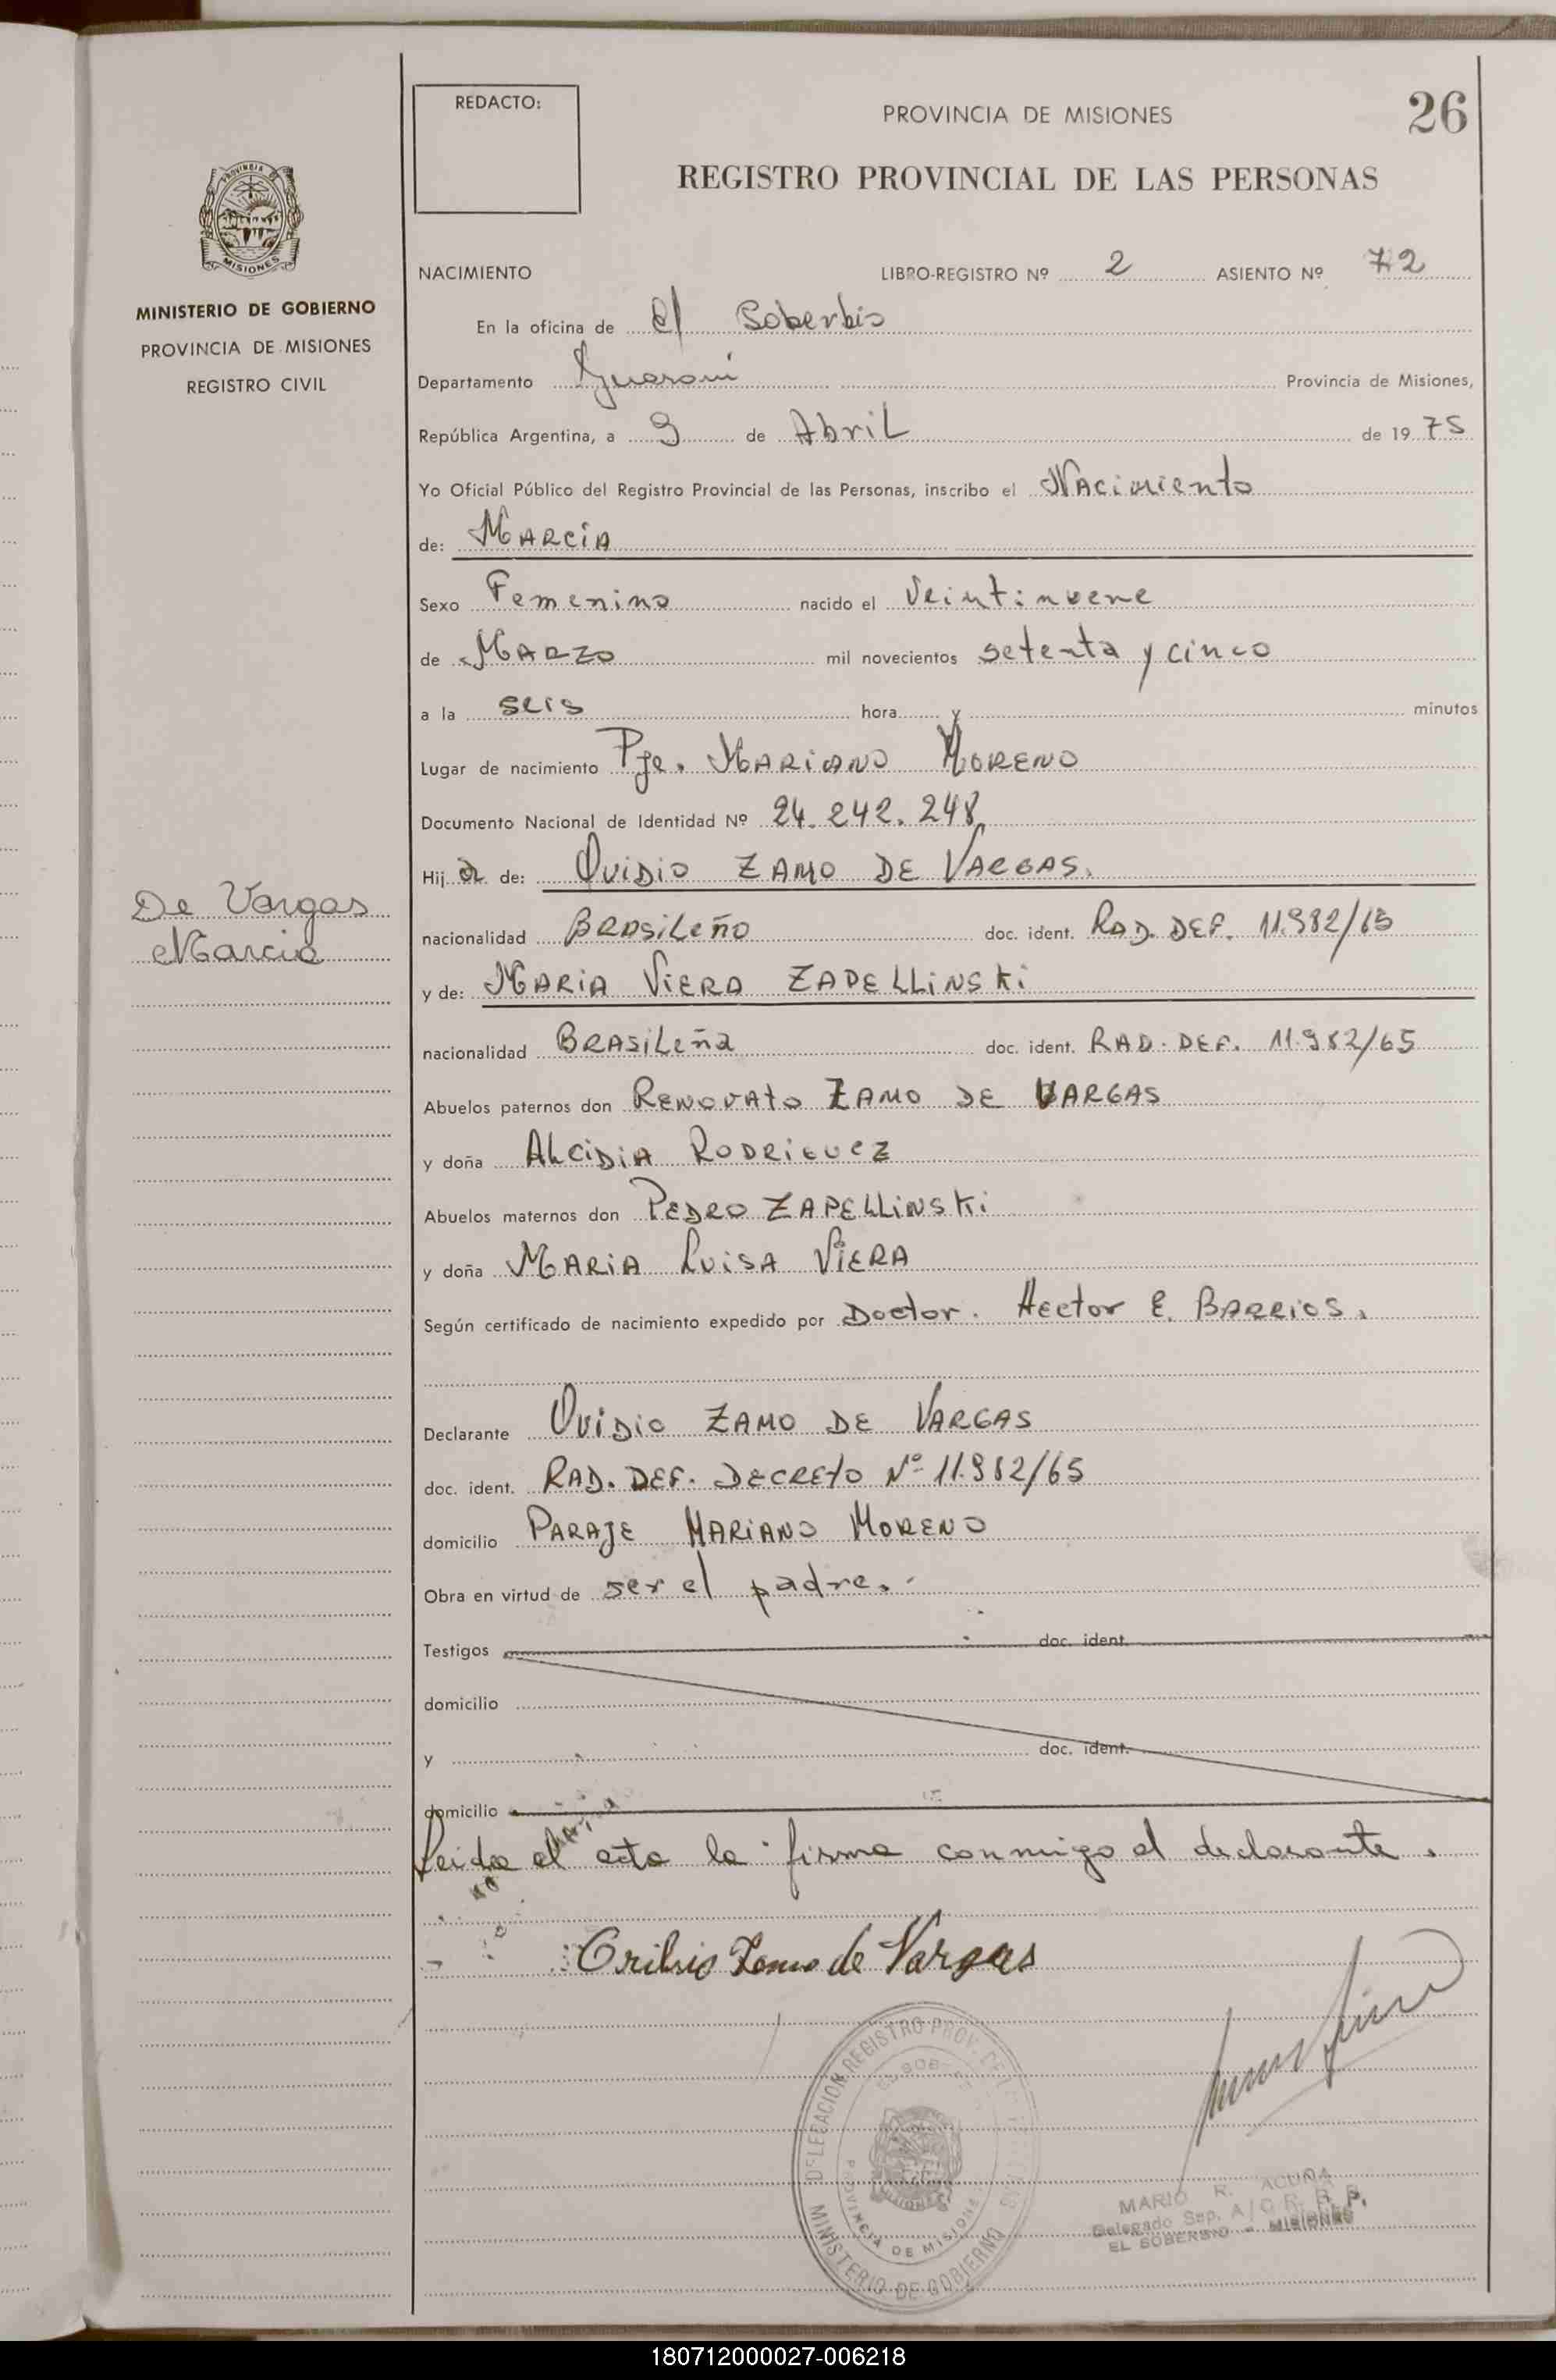 REDACTO:
PROVINCIA DE MISIONES
26
REGISTRO PROVINCIAL DE LAS PERSONAS
PROVINCIA DE
MISIONES
MINISTERIO DE GOBIERNO
PROVINCIA DE MISIONES
REGISTRO CIVIL
NACIMIENTO LIBRO-REGISTRO Nº 2 ASIENTO Nº 72
En la oficina de El Soberbio
Departamento Guaraní Provincia de Misiones,
República Argentina, a 9 de Abril de 1975
Yo Oficial Público del Registro Provincial de las Personas, inscribo el Nacimiento
de: MARCIA
Sexo Femenino nacido el Veintinueve
de MARZO mil novecientos setenta y cinco
a la seis hora y minutos
Lugar de nacimiento Pje. MARIANO MORENO
Documento Nacional de Identidad Nº 24.242.248
Hija de: OVIDIO ZAMO DE VARGAS.
De Vargas
Marcia
nacionalidad BRASILEÑO doc. ident. RAD. DEF. 11.982/65
y de: MARIA VIERA ZAPELLINSKI
nacionalidad BRASILEÑA doc. ident. RAD. DEF. 11.982/65
Abuelos paternos don RENOVATO ZAMO DE VARGAS
y doña ALCIDIA RODRIGUEZ
Abuelos maternos don PEDRO ZAPELLINSKI
y doña MARIA LUISA VIERA
Según certificado de nacimiento expedido por Doctor. Hector E. BARRIOS.
Declarante OVIDIO ZAMO DE VARGAS
doc. ident. RAD. DEF. DECRETO Nº 11.982/65
domicilio PARAJE MARIANO MORENO
Obra en virtud de ser el padre.
Testigos doc. ident.
domicilio
y doc. ident.
domicilio
Leida el acta la firma conmigo el declarante.
Zamo de Vargas
DELEGACION REGISTRO PROV. DE
PROVINCIA DE MISIONES
MINISTERIO DE GOBIERNO
MARIO R. ACUÑA
Delegado Sup. A/C R. R. P.
EL SOBERBIO - MISIONES
180712000027-006218